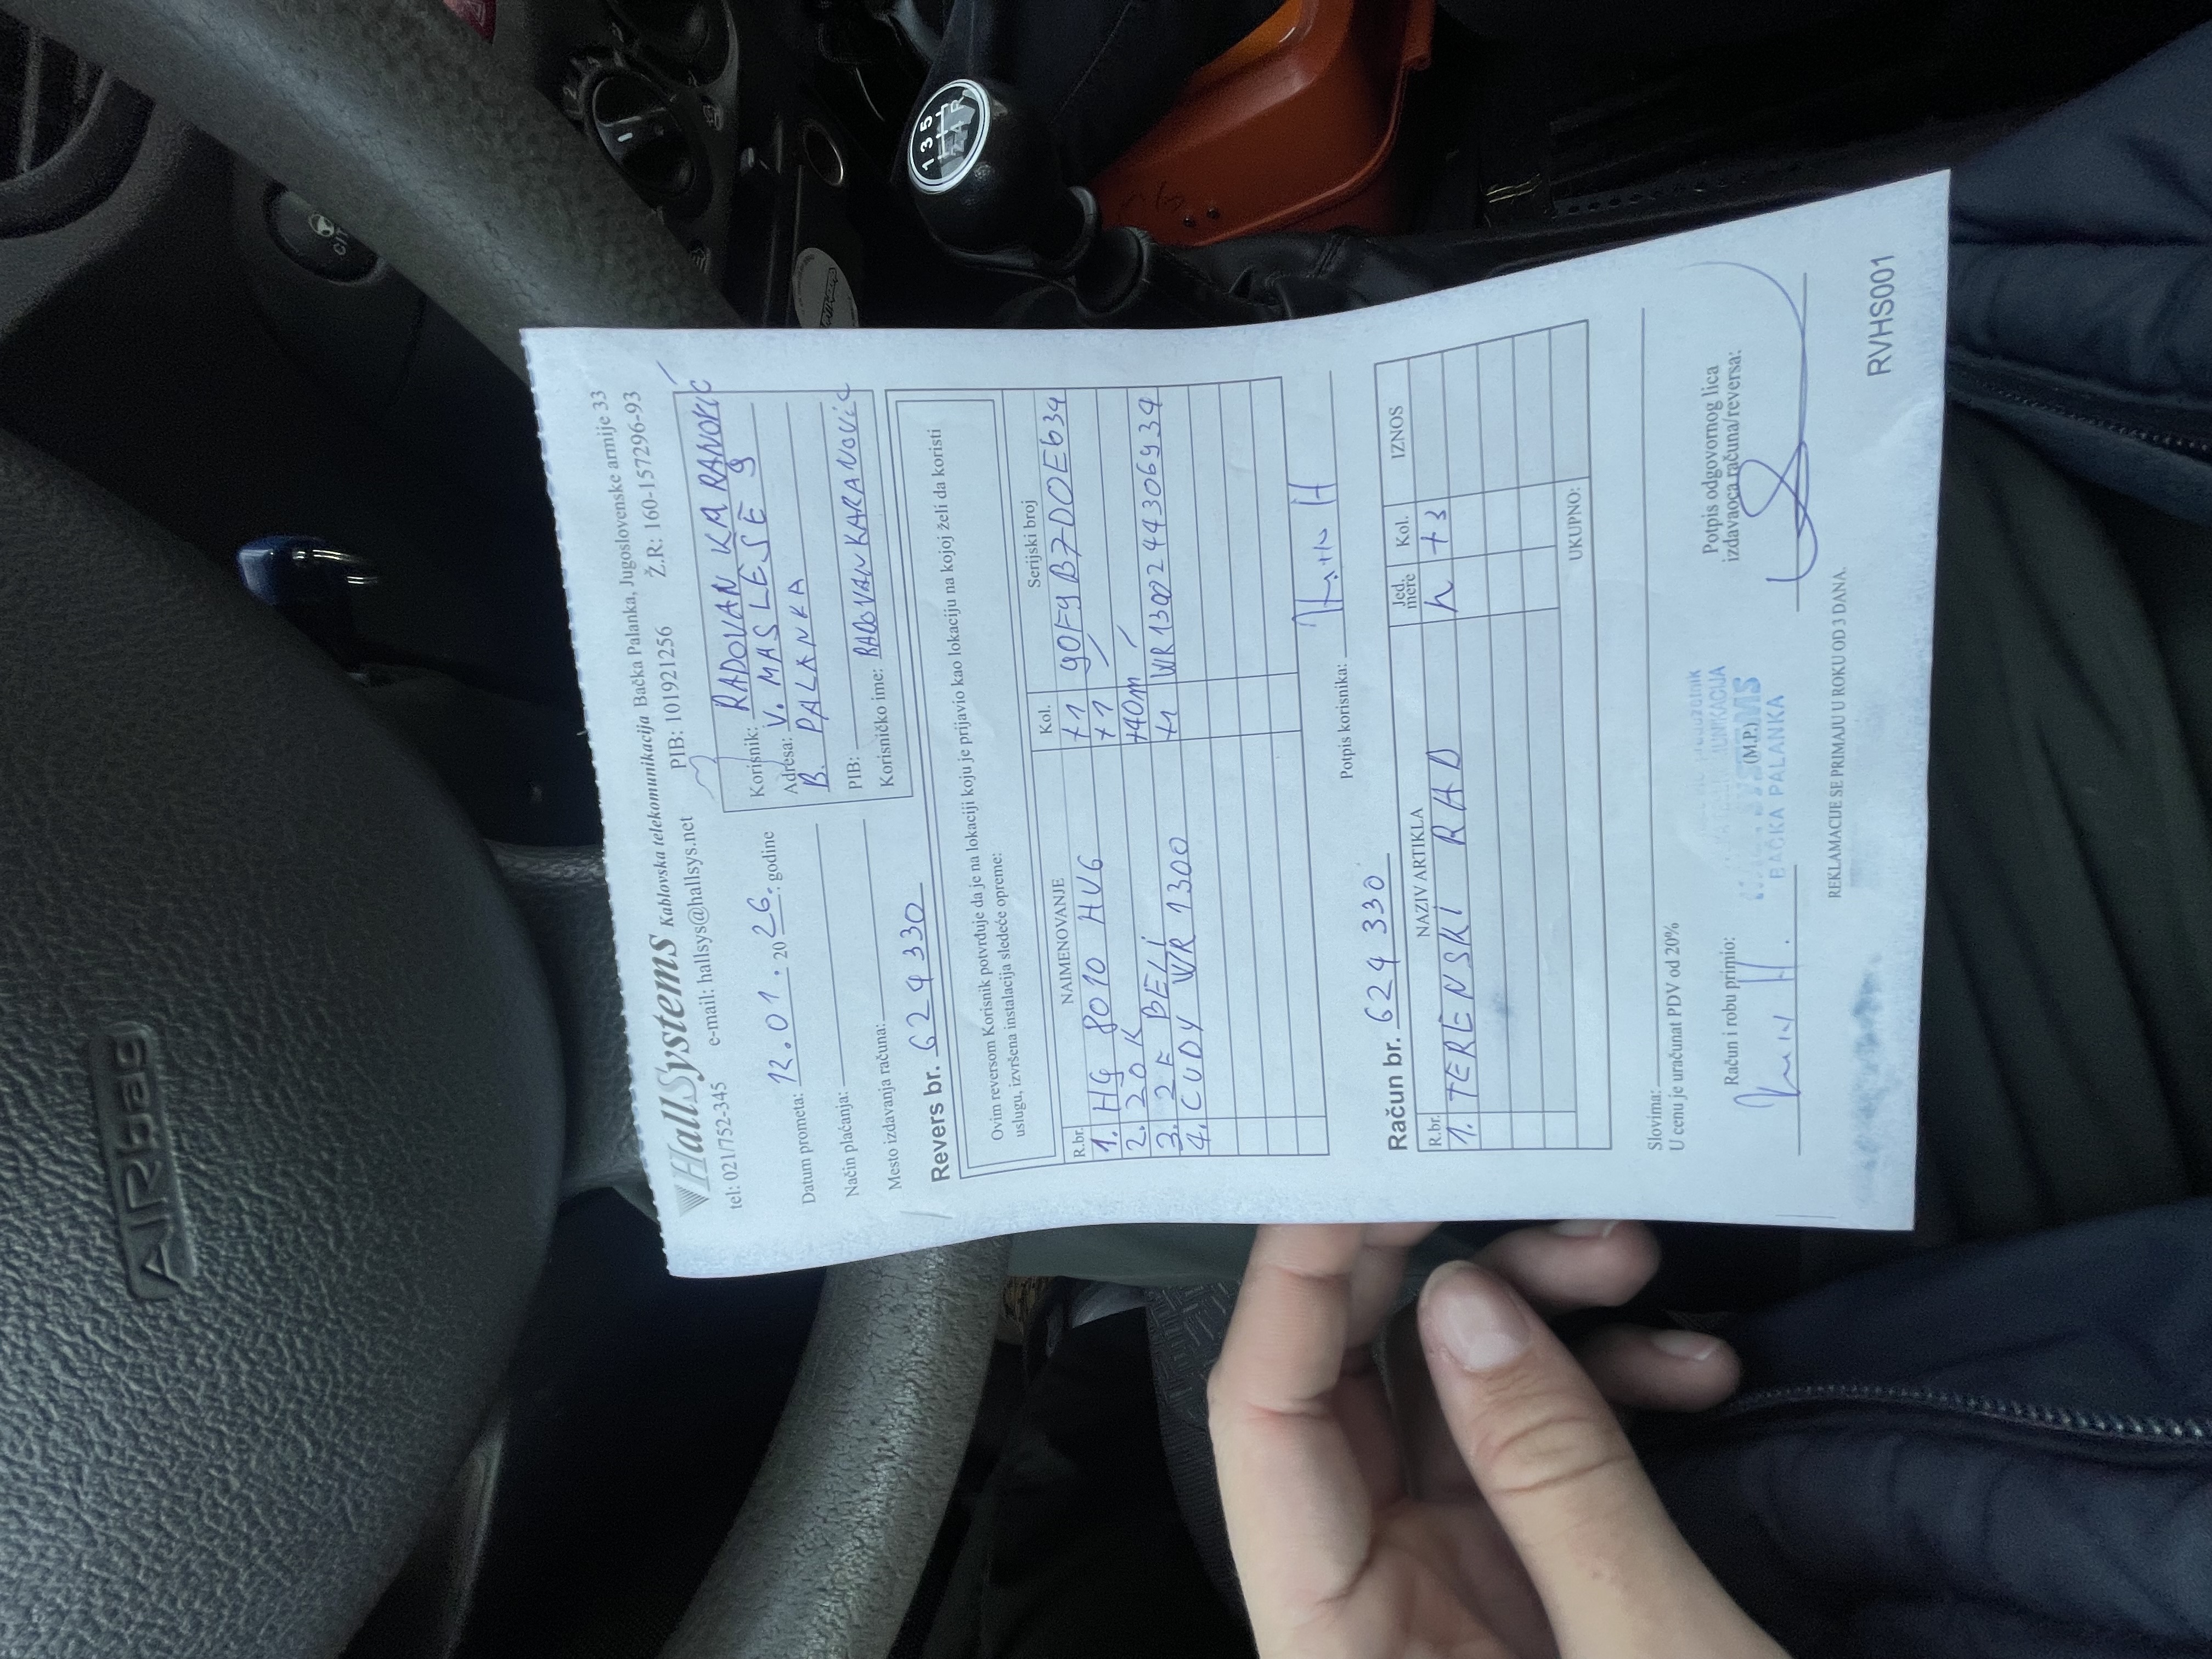 HallSystems Kablovska telekomunikacija Bačka Palanka, Jugoslovenske armije 33
tel: 021/752-345 e-mail: hallsys@hallsys.net PIB: 101921256 Ž.R: 160-1557296-93
Datum prometa: 12.01. 2026. godine
Način plaćanja:
Mesto izdavanja računa:
Korisnik: RADOVAN KARANOVIĆ
Adresa: V. MASLEŠE 9
B. PALANKA
PIB:
Korisničko ime: RADOVANKARANOVIĆ
Revers br. 624 330
Ovim reversom Korisnik potvrđuje da je na lokaciji koju je prijavio kao lokaciju na kojoj želi da koristi
uslugu, izvršena instalacija sledeće opreme:
R.br. NAIMENOVANJE Kol. Serijski broj
1. HG 8010 HV6 +1 90F9B7D0E634
2. 20K +1
3. 2F BELI +40m
4. CUDY WR 1300 +1 WR1300244306934
Potpis korisnika:
Račun br. 624 330
R.br. NAZIV ARTIKLA Jed. mere Kol. IZNOS
1. TERENSKI RAD h +3
UKUPNO:
Slovima:
U cenu je uračunat PDV od 20%
Račun i robu primio:
(M.P.)
BAČKA PALANKA
Potpis odgovornog lica
izdavaoca računa/reversa:
REKLAMACIJE SE PRIMAJU U ROKU OD 3 DANA.
RVHS001
AIRbag
1 3 5
R